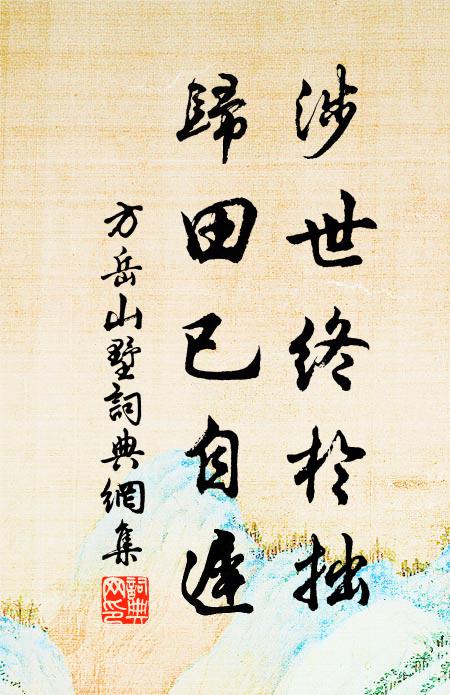 涉世終於拙
歸田已自遲
方岳山墅詞典網集
詞典網印